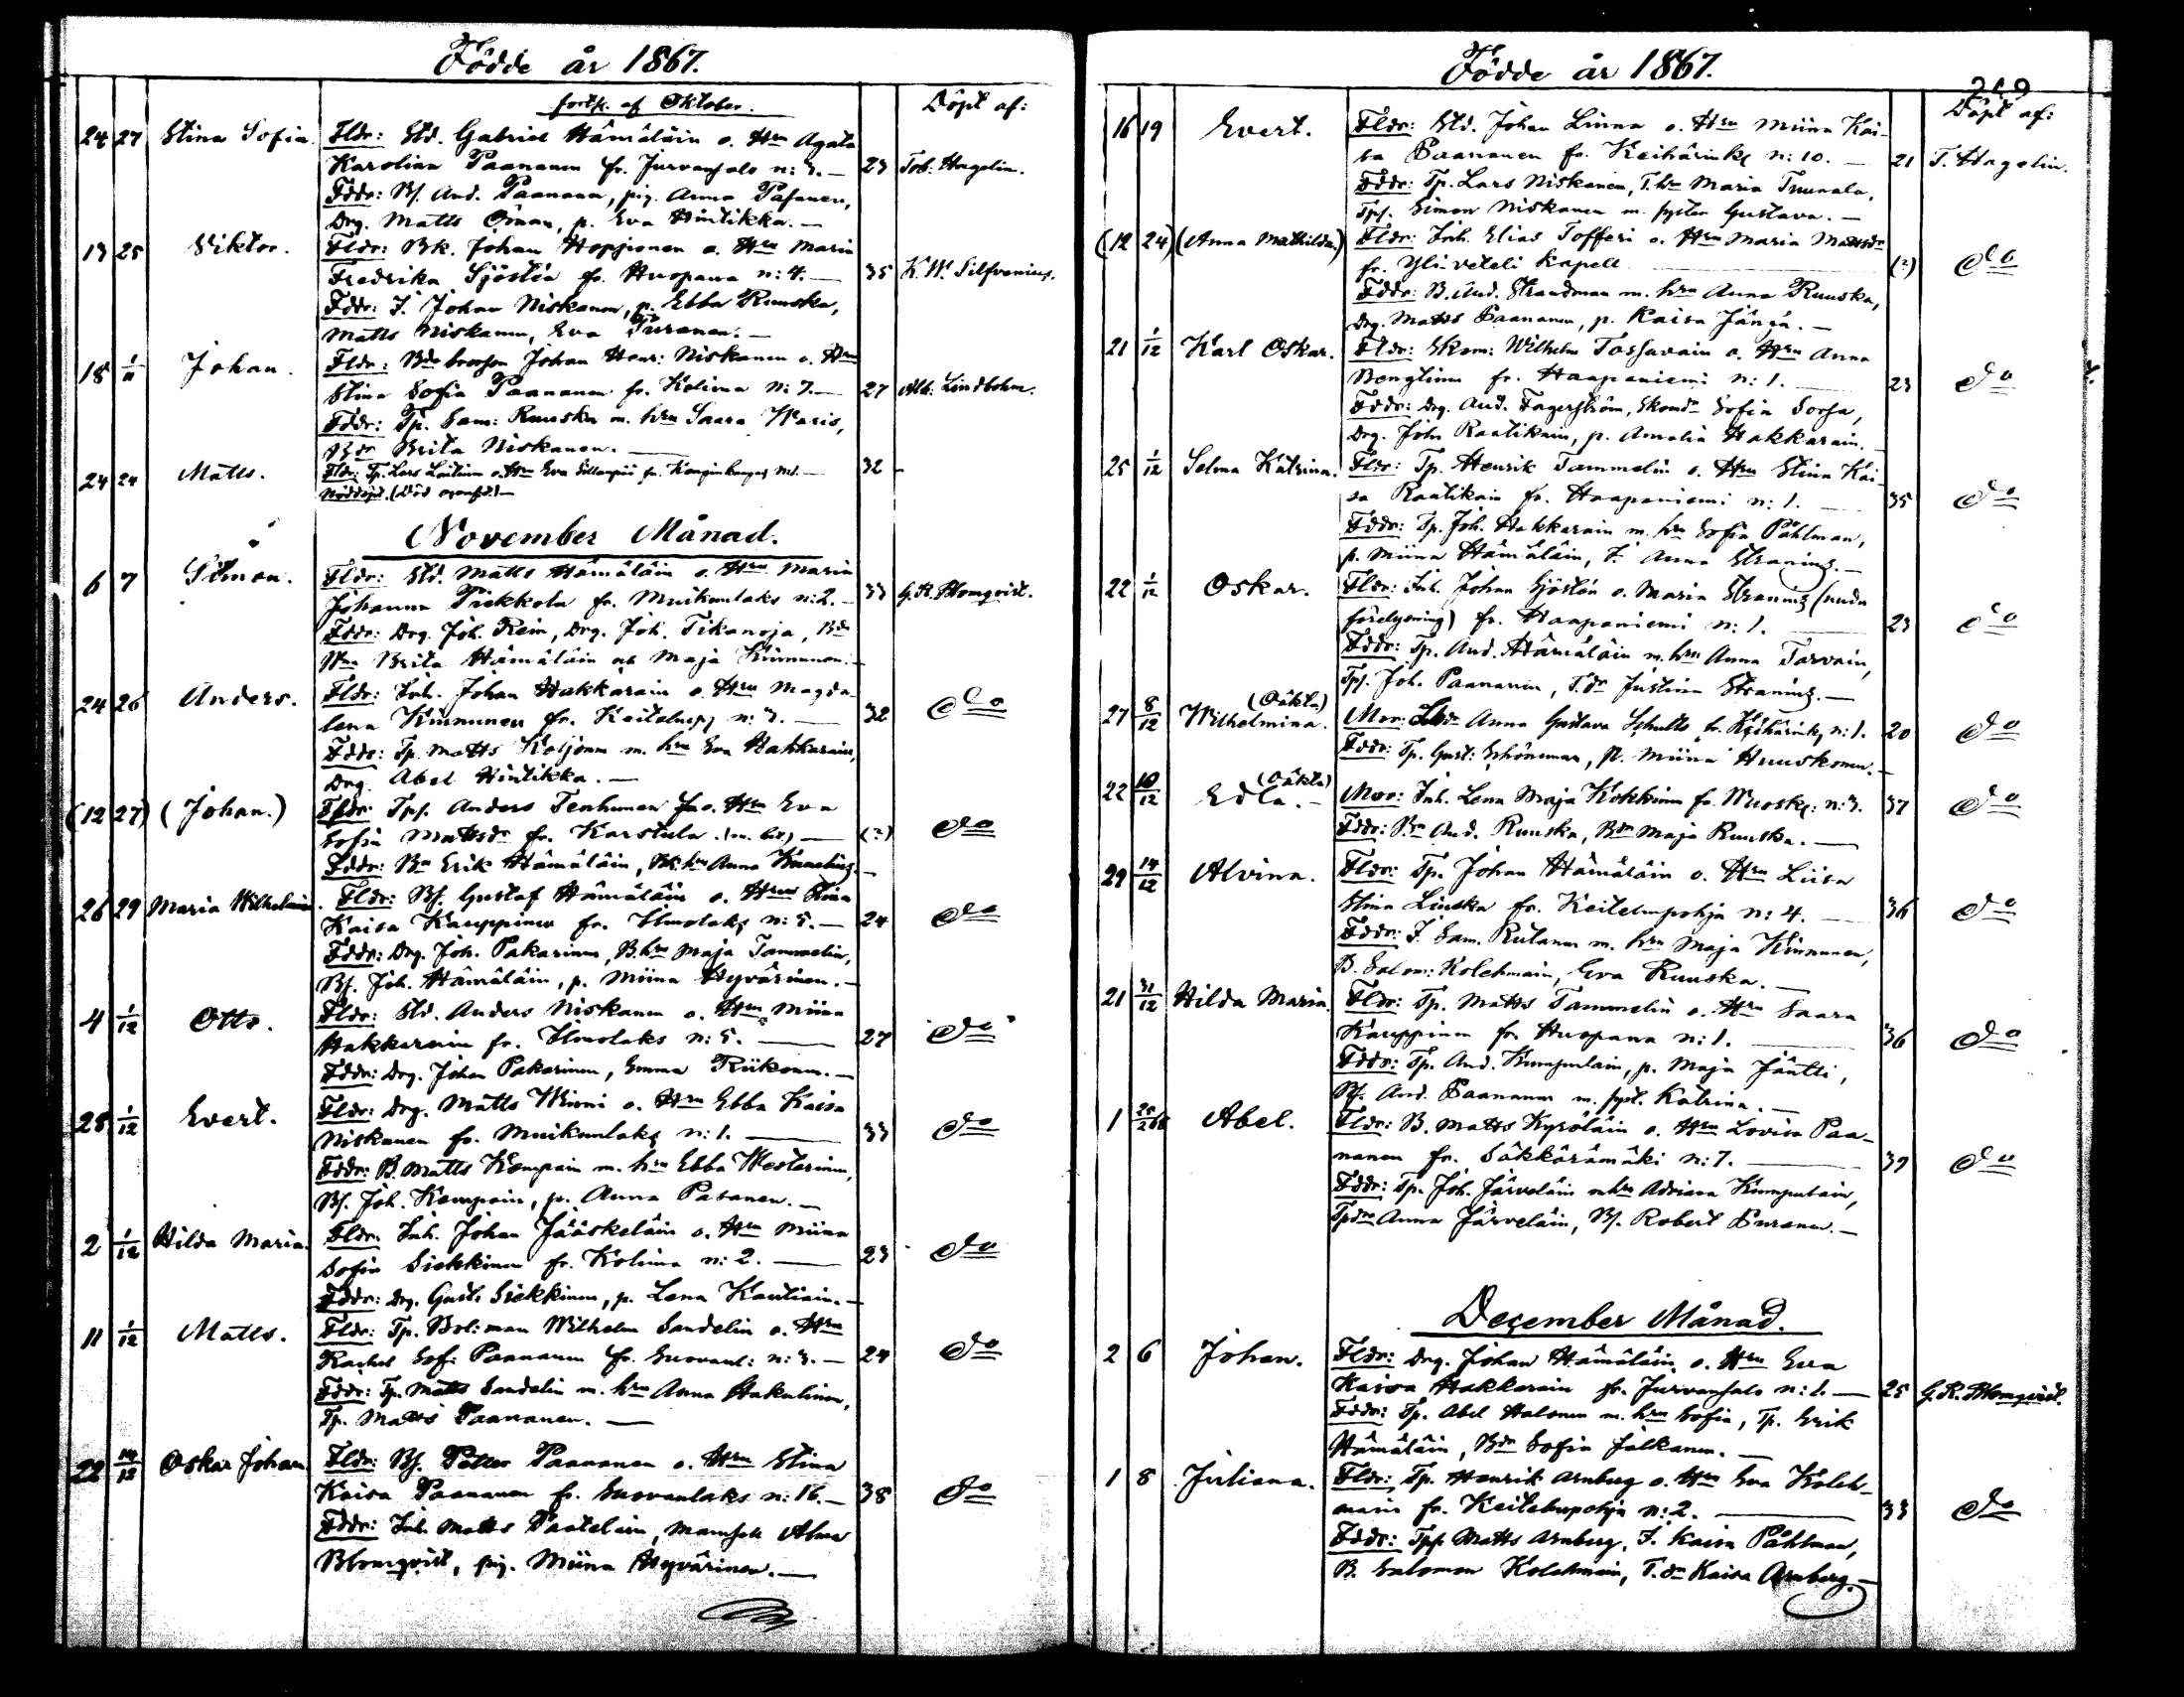 Födde år 1867.
forts. af Oktober.
Döpt af:
24 27 Stina Sofia. Fldr: Std. Gabriel Hämäläin o. Hru Agata
Karolina Paananen fr. Jurvansalo n: 3. — 23 Tob. Hagelin.
Fddr: Bs. And. Paananen, pig. Anna Pasanen,
Drg. Matts Öman, p. Eva Hintikka. —
13 25 Viktor. Fldr: Bk. Johan Hopponen o. Hru Maria
Fredrika Sjöstén fr. Huopana n: 4. — 35 K. W. Silfvenius.
Fddr: I. Johan Niskanen, p. Ebba Ruuska,
Matts Niskanen, Eva Puranen. —
18 1/11 Johan. Fldr: Johan Henr: Niskanen o. Hru
Stina Sofia Paananen fr. Kolima n: 7. — 27 Alb: Lindbohm.
Fddr: Tp. Sam: Ruuska m. hru Saara Waris,
Bdr Brita Niskanen. —
24 24 Matts. Fldr: Tp. Lars Laitinen o. Hru Eva fr. — 32 -
Nöddöpt. —
November Månad.
6 7 Simon. Fldr: Std. Matts Hämäläin o. Hru Maria
Johanna Piekkola fr. Muikunlaks n: 2. — 33 G. R. Blomqvist.
Fddr: Drg. Joh. Rein, Drg. Joh. Tikanoja, Bdr
Brita Hämäläin Maja Kinnunen. —
24 26 Anders. Fldr: Inh. Johan Hakkarain o. Hru Magda-
lena Kinnunen fr. n: 3. — 32 do
Fddr: Tp. Matts Koljonen m. hru Eva Hakkarain,
Drg. Abel Hintikka. —
(12 27) (Johan.) Fldr: Tps. Anders Tenhunen o. Hru Eva
Sofia Mattsdr fr. Karstula. — (?) do
Fddr: Bn Erik Hämäläin, hru Anna —
26 29 Maria Wilhelmina. Fldr: Bs. Gustaf Hämäläin o. Hru Stina
Kaisa Kauppinen fr. Ilmolaks n: 5. — 24 do
Fddr: Drg. Joh. Pakarinen, B. hru Maja Tammelin,
Bs. Joh. Hämäläin, p. Miina Hyvärinen. —
4 1/12 Otto. Fldr: Std. Anders Niskanen o. Hru Miina
Hakkarain fr. Ilmolaks n: 5. — 27 do
Fddr: Drg. Johan Pakarinen, Emma Riikonen. —
28 1/12 Evert. Fldr: Drg. Matts Winni o. Hru Ebba Kaisa
Niskanen fr. Muikunlaks n: 1. — 33 do
Fddr: B. Matts Kempain m. hru Ebba Westerinen,
Bs. Joh. Kempain, p. Anna Pasanen. —
2 1/12 Hilda Maria. Fldr. Inh. Johan Jääskeläin o. Hru Miina
Sofia Siekkinen fr. Kolima n: 2. — 23 do
Fddr: Drg. Gust. Siekkinen, p. Lena Kautiain. —
11 1/12 Matts. Fldr: Tp. Wilhelm Sandelin o. Hru
Rachel Sof: Paananen fr. Suovanl: n: 3. — 24 do
Fddr: Tp. Matts Sandelin m. hru Anna Hakulinen,
Tp. Matts Paananen. —
22 14/12 Oskar Johan Fldr: Bs. Petter Paananen o. Hru Stina
Kaisa Paananen fr. Suovanlaks n: 16. — 38 do
Fddr: Inh. Matts Paatelain, Mamsell Alma
Blomqvist, pig. Miina Hyvärinen. —
Födde år 1867.
219
Döpt af:
16 19 Evert. Fldr: Std. Johan Linna o. Hru Miina Kai-
sa Paananen fr. Keihärinks n: 10. — 21 T. Hagelin.
Fddr: Tp. Lars Niskanen, T. hr Maria Tuunala,
Tps. Simon Niskanen m. syster Gustava. —
(12 24) (Anna Mathilda.) Fldr: Inh. Elias Tofferi o. Hru Maria Mattsdr
fr. Yli-veteli Kapell. (?) do
Fddr: B. And. Strandman m. hru Anna Ruuska,
Drg. Matts Paananen, p. Kaisa —
21 1/12 Karl Oskar. Fldr: Skom: Wilhelm Tossavain o. Hru Anna
Bengtinen fr. Haapaniemi n: 1. 23 do
Fddr: Drg. And. Fagerström, Skomdr Sofia
Drg. Johr Raatikain, p. Amalia Hakkarain. —
25 1/12 Selma Katrina. Fldr: Tp. Henrik Tammelin o. Hru Stina Kai-
sa Raatikain fr. Haapaniemi n: 1. 35 do
Fddr: Tp. Joh. Hakkarain m. hru Sofia Påhlman,
p. Miina Hämäläin, I. Anna Straning. —
22 1/12 Oskar. Fldr: Inh. Johan Sjöstén o. Maria Straning (under
förelysning) fr. Haapaniemi n: 1. 23 do
Fddr: Tp. And. Hämäläin m. hru Anna Tarvain,
Tps. Joh. Paananen, T. dr Justina Straning. —
27 8/12 (Oäkta) Wilhelmina. Mor: Anna Gustava Schults fr. Keihärinks n: 1. 20 do
Fddr: Tp. Gust: Schönman, p. Miina Huuskonen. —
22 10/12 (Oäkta) Edla. — Mor: Inh. Lena Maja Kokkinen fr. Wuosk: n: 3. 37 do
Fddr: Bn And. Ruuska, Bdr Maja Ruuska. —
29 14/12 Alvina. Fldr: Tp. Johan Hämäläin o. Hru Liisa
Stina Linska fr. Keitelepohja n: 4. — 36 do
Fddr: I. Sam. Rutanen m. hru Maja Kinnunen,
B. Salom: Kolehmain, Eva Ruuska. —
21 31/12 Hilda Maria Fldr: Tp. Matts Tammelin o. Hru Saara
Kauppinen fr. Huopana n: 1. 36 do
Fddr: Tp. And. Kumpulain, p. Maja Jäntti,
Bs. And. Paananen m. syst. Katrina. —
1 Abel. Fldr: B. Matts Kyröläin o. Hru Lovisa Paa-
nanen fr. Säkkärämäki n: 7. 37 do
Fddr: Tp. Joh. Järveläin m hru Adriana Kumpulain,
Tpdr Anna Järveläin, Bs. Robert Puranen. —
December Månad.
2 6 Johan. Fldr: Drg. Johan Hämäläin o. Hru Eva
Kaisa Hakkarain fr. Jurvansalo n: 1. — 25 G. R. Blomqvist.
Fddr: Tp. Abel Halonen m. hru Sofia, Tp. Erik
Hämäläin, Bdr Sofia Jalkanen. —
1 8 Juliana. Fldr: Tp. Henrik Arnberg o. Hru Eva Koleh-
main fr. Keitelepohja n: 2. 33 do
Fddr: Tps. Matts Arnberg, I. Kaisa Påhlman,
B. Salomon Kolehmain, T. dr Kaisa Arnberg. —